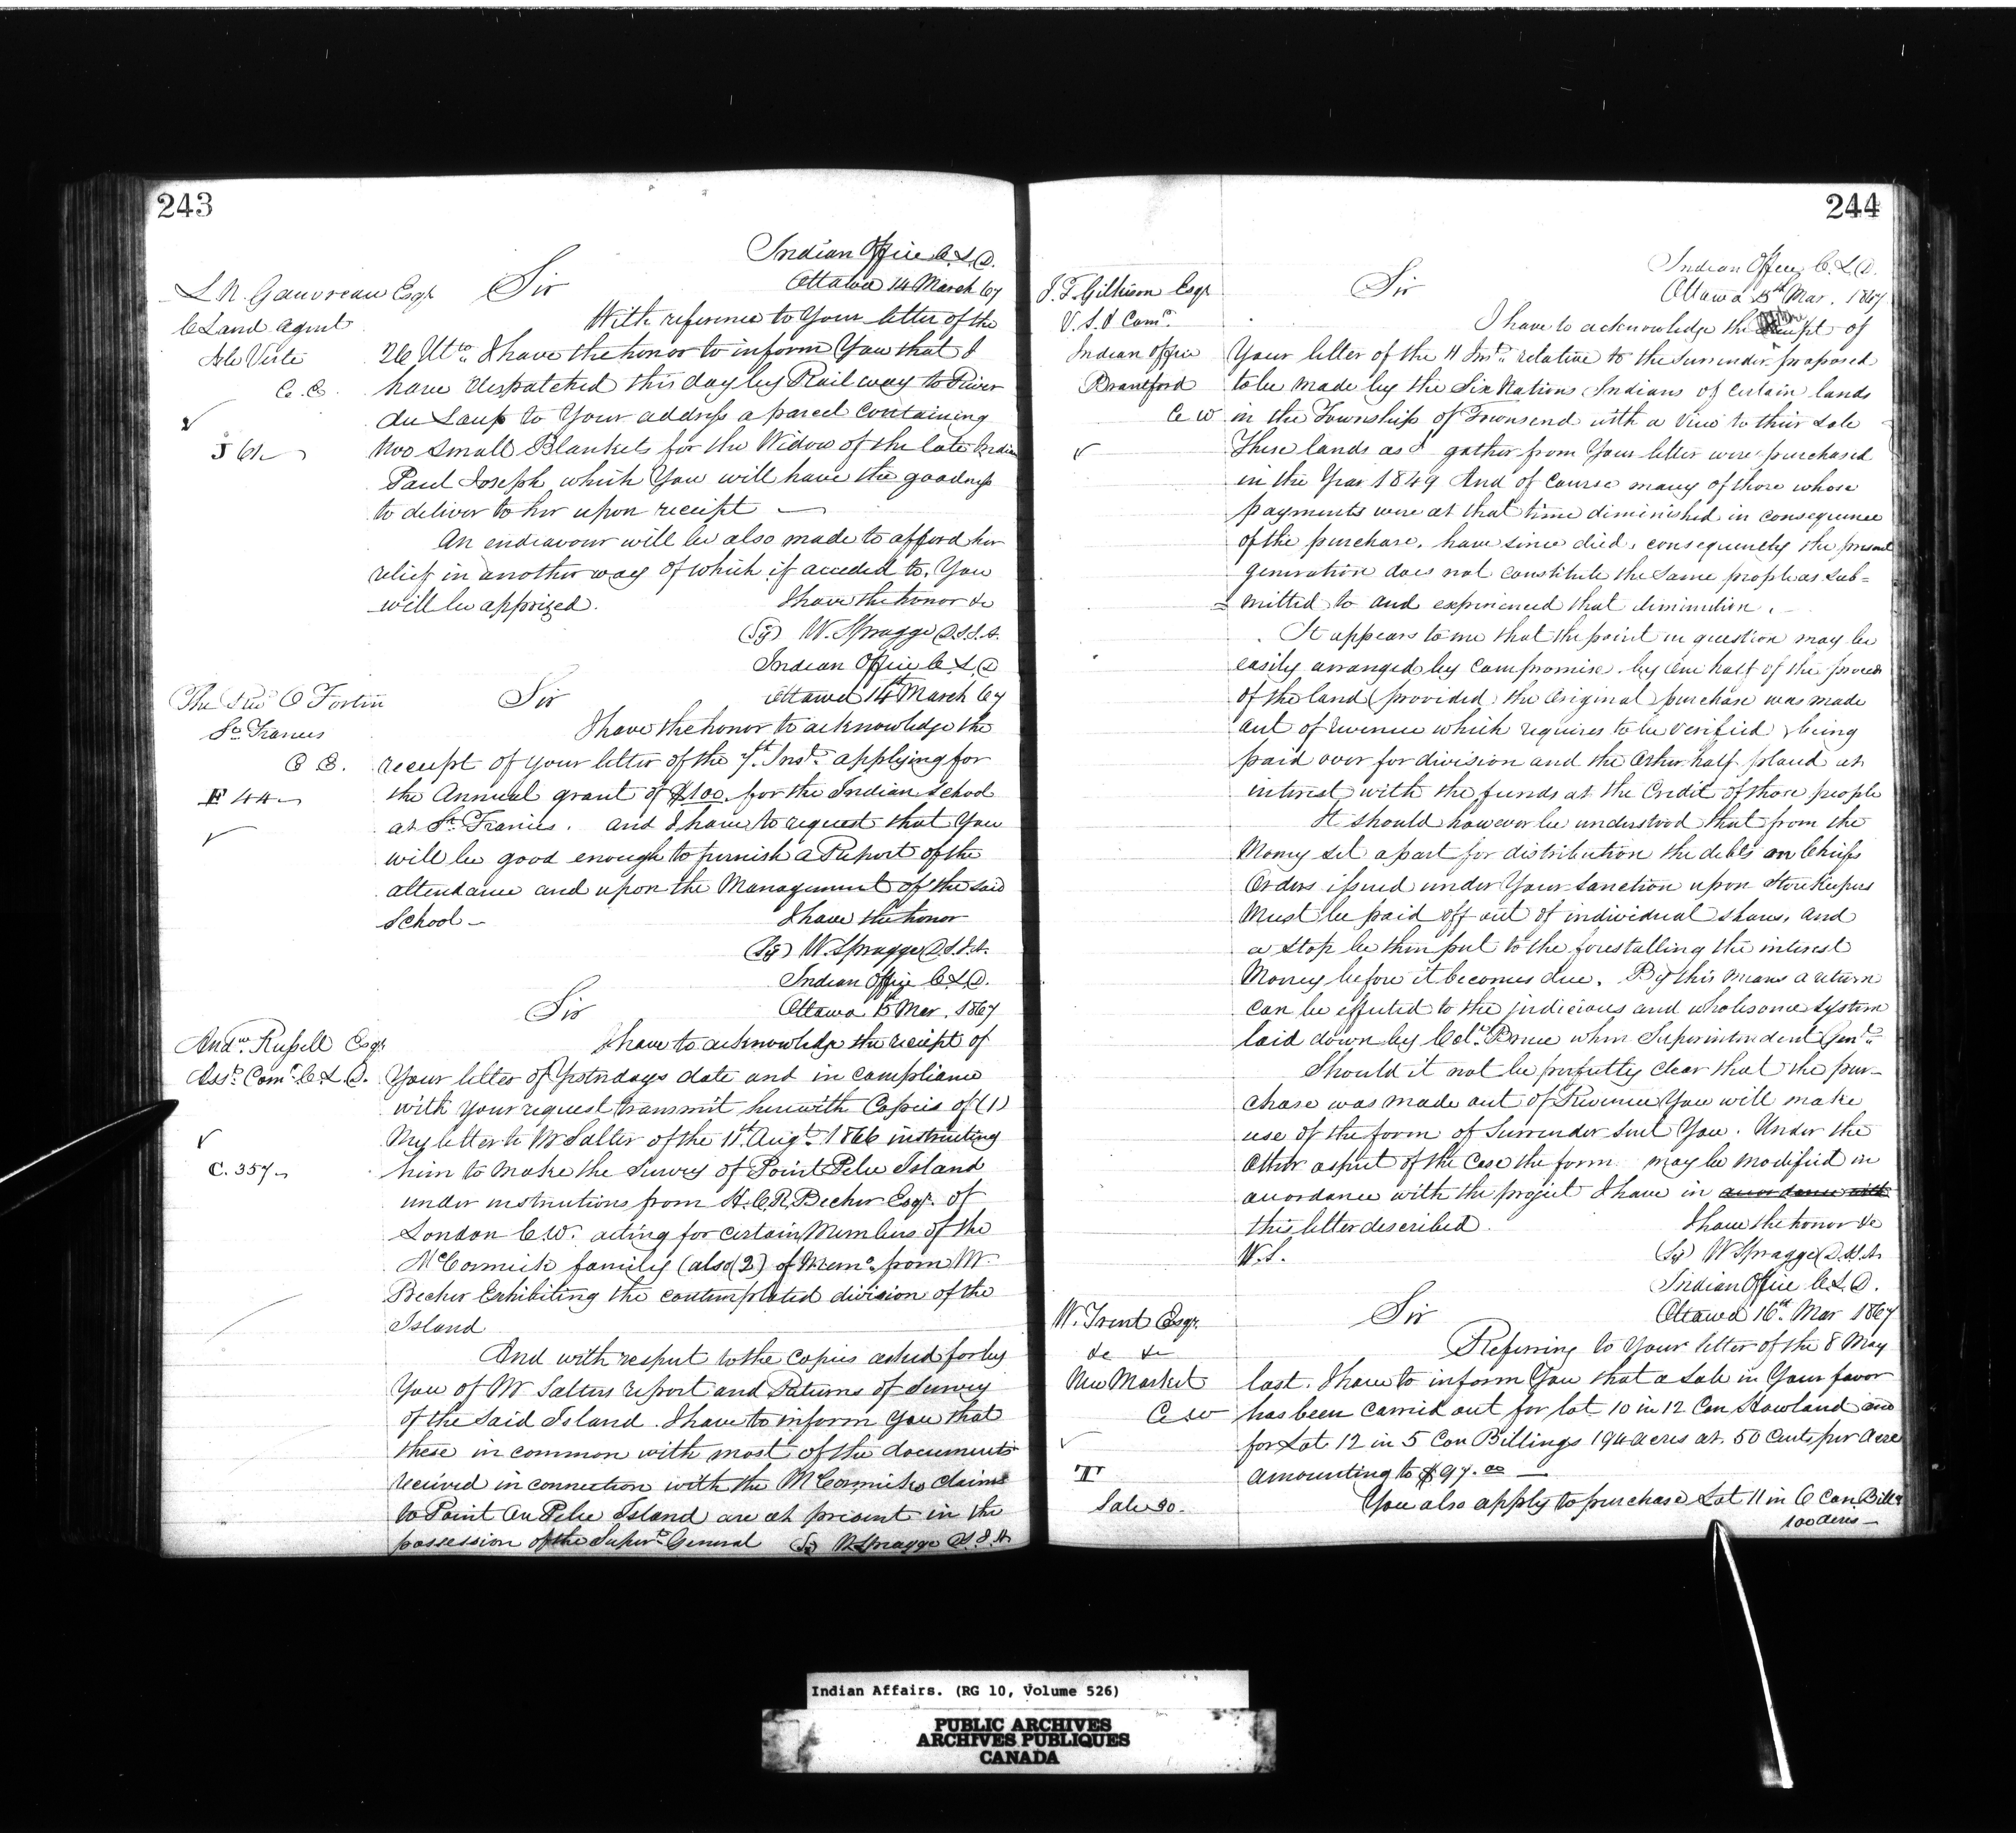 243
Indian Office C.L.D.
Ottawa 14 March 67
L. N. Gauvreau Esqr
C Land Agent
Isle Verte
C. E.
J 61
Sir
With reference to Your letter of the
26 Ulto I have the honor to inform You that I
have despatched this day by Rail way to River
du Loup to Your address a parcel containing
two small Blankets for the Widow of the late Indian
Paul Joseph which You will have the goodness
to deliver to her upon receipt —
An endeavour will be also made to afford her
relief in another way of which if acceded to, You
will be apprized. I have the honor &c
(Sg) W. Spragge D.S.I.A.
Indian Office C.L.D
Ottawa 14th March 67
The Revd O Fortin
St Francis
C E.
F 44
Sir
I have the honor to acknowledge the
receipt of your letter of the 7t Inst. applying for
the Annual grant of $100. for the Indian School
at St Francis. and I have to request that You
will be good enough to furnish a Report of the
attendance and upon the Management of the said
School — I have the honor
(Sg) W. Spragge D.S.I.A.
Indian Office C.L.D.
Ottawa 15 Mar. 1867
Sir
Andw. Russell Esqr
Asst. Comr. C.L.D.
C. 357
I have to acknowledge the receipt of
Your letter of Yesterdays date and in compliance
with your request transmit herewith Copies of (1)
My letter to Mr Salter of the 11th Augt. 1866 instructing
him to make the Survey of Point Pelee Island
under instructions from H.C.R. Becher Esqr. of
London C.W. acting for certain Members of the
McCormick family (also (2) of Memo. from Mr
Becher Exhibiting the contemplated division of the
Island
And with respect to the Copies asked for by
You of Mr Salters report and Returns of Survey
of the said Island. I have to inform you that
these in common with most of the documents
received in connection with the McCormicks claims
to Point Au Pelee Island are at present in the
possession of the Supert General (Sg) W Spragge D.S.I.A
244
Indian Office, C.L.D.
Ottawa 15th Mar. 1867
J. T. Gilkison Esqr
V. S. & Comr.
Indian Office
Brantford
C W
Sir
I have to acknowledge the receipt of
Your letter of the 11 Inst. relative to the surrender proposed
to be made by the Six Nations Indians of certain lands
in the Township of Townsend with a View to their sale
These lands as I gather from Your letter were purchased
in the Year 1849 And of Course many of those whose
payments were at that time diminished in consequence
of the purchase, have since died, consequently the present
generation does not constitute the same people as sub=
=mitted to and experienced that diminution.
It appears to me that the point in question may be
easily arranged by Compromise. by one half of the proceeds
of the land (provided the Original purchase was made
out of revenue which requires to be Verified) being
paid over for division and the other half placed at
interest with the funds at the Credit of those people
It should however be understood that from the
Money set apart for distribution the debts on Chiefs
Orders issued under Your sanction upon Store Keepers
Must be paid off out of individual shares, and
a Stop be then put to the forestalling the interest
Money before it becomes due. By this means a return
can be effected to the judicious and wholesome system
laid down by Col. Bruce when Superintendent Genl.
Should it not be perfectly clear that the pur-
chase was made out of Revenue You will make
use of the form of Surrender sent You. Under the
Other aspect of the Case the form may be modified in
accordance with the project I have in accordance with
this letter described. I have the honor &c
W.S. (Sg) W Spragge D.S.I.A
Indian Office C.L.D.
Ottawa 16th Mar 1867
W. Trent Esqr.
&c &c
New Market
C W
T
Sale 30.
Sir
Referring to Your letter of the 8 May
last. I have to inform You that a sale in Your favor
has been carried out for lot 10 in 12 Con Howland and
for Lot 12 in 5 Con Billings 194 acres at 50 Cents per Acre
amounting to $97.00 —
You also apply to purchase Lot 11 in 6 Con. Bills
100 acres —
Indian Affairs. (RG 10, Volume 526)
PUBLIC ARCHIVES
ARCHIVES PUBLIQUES
CANADA